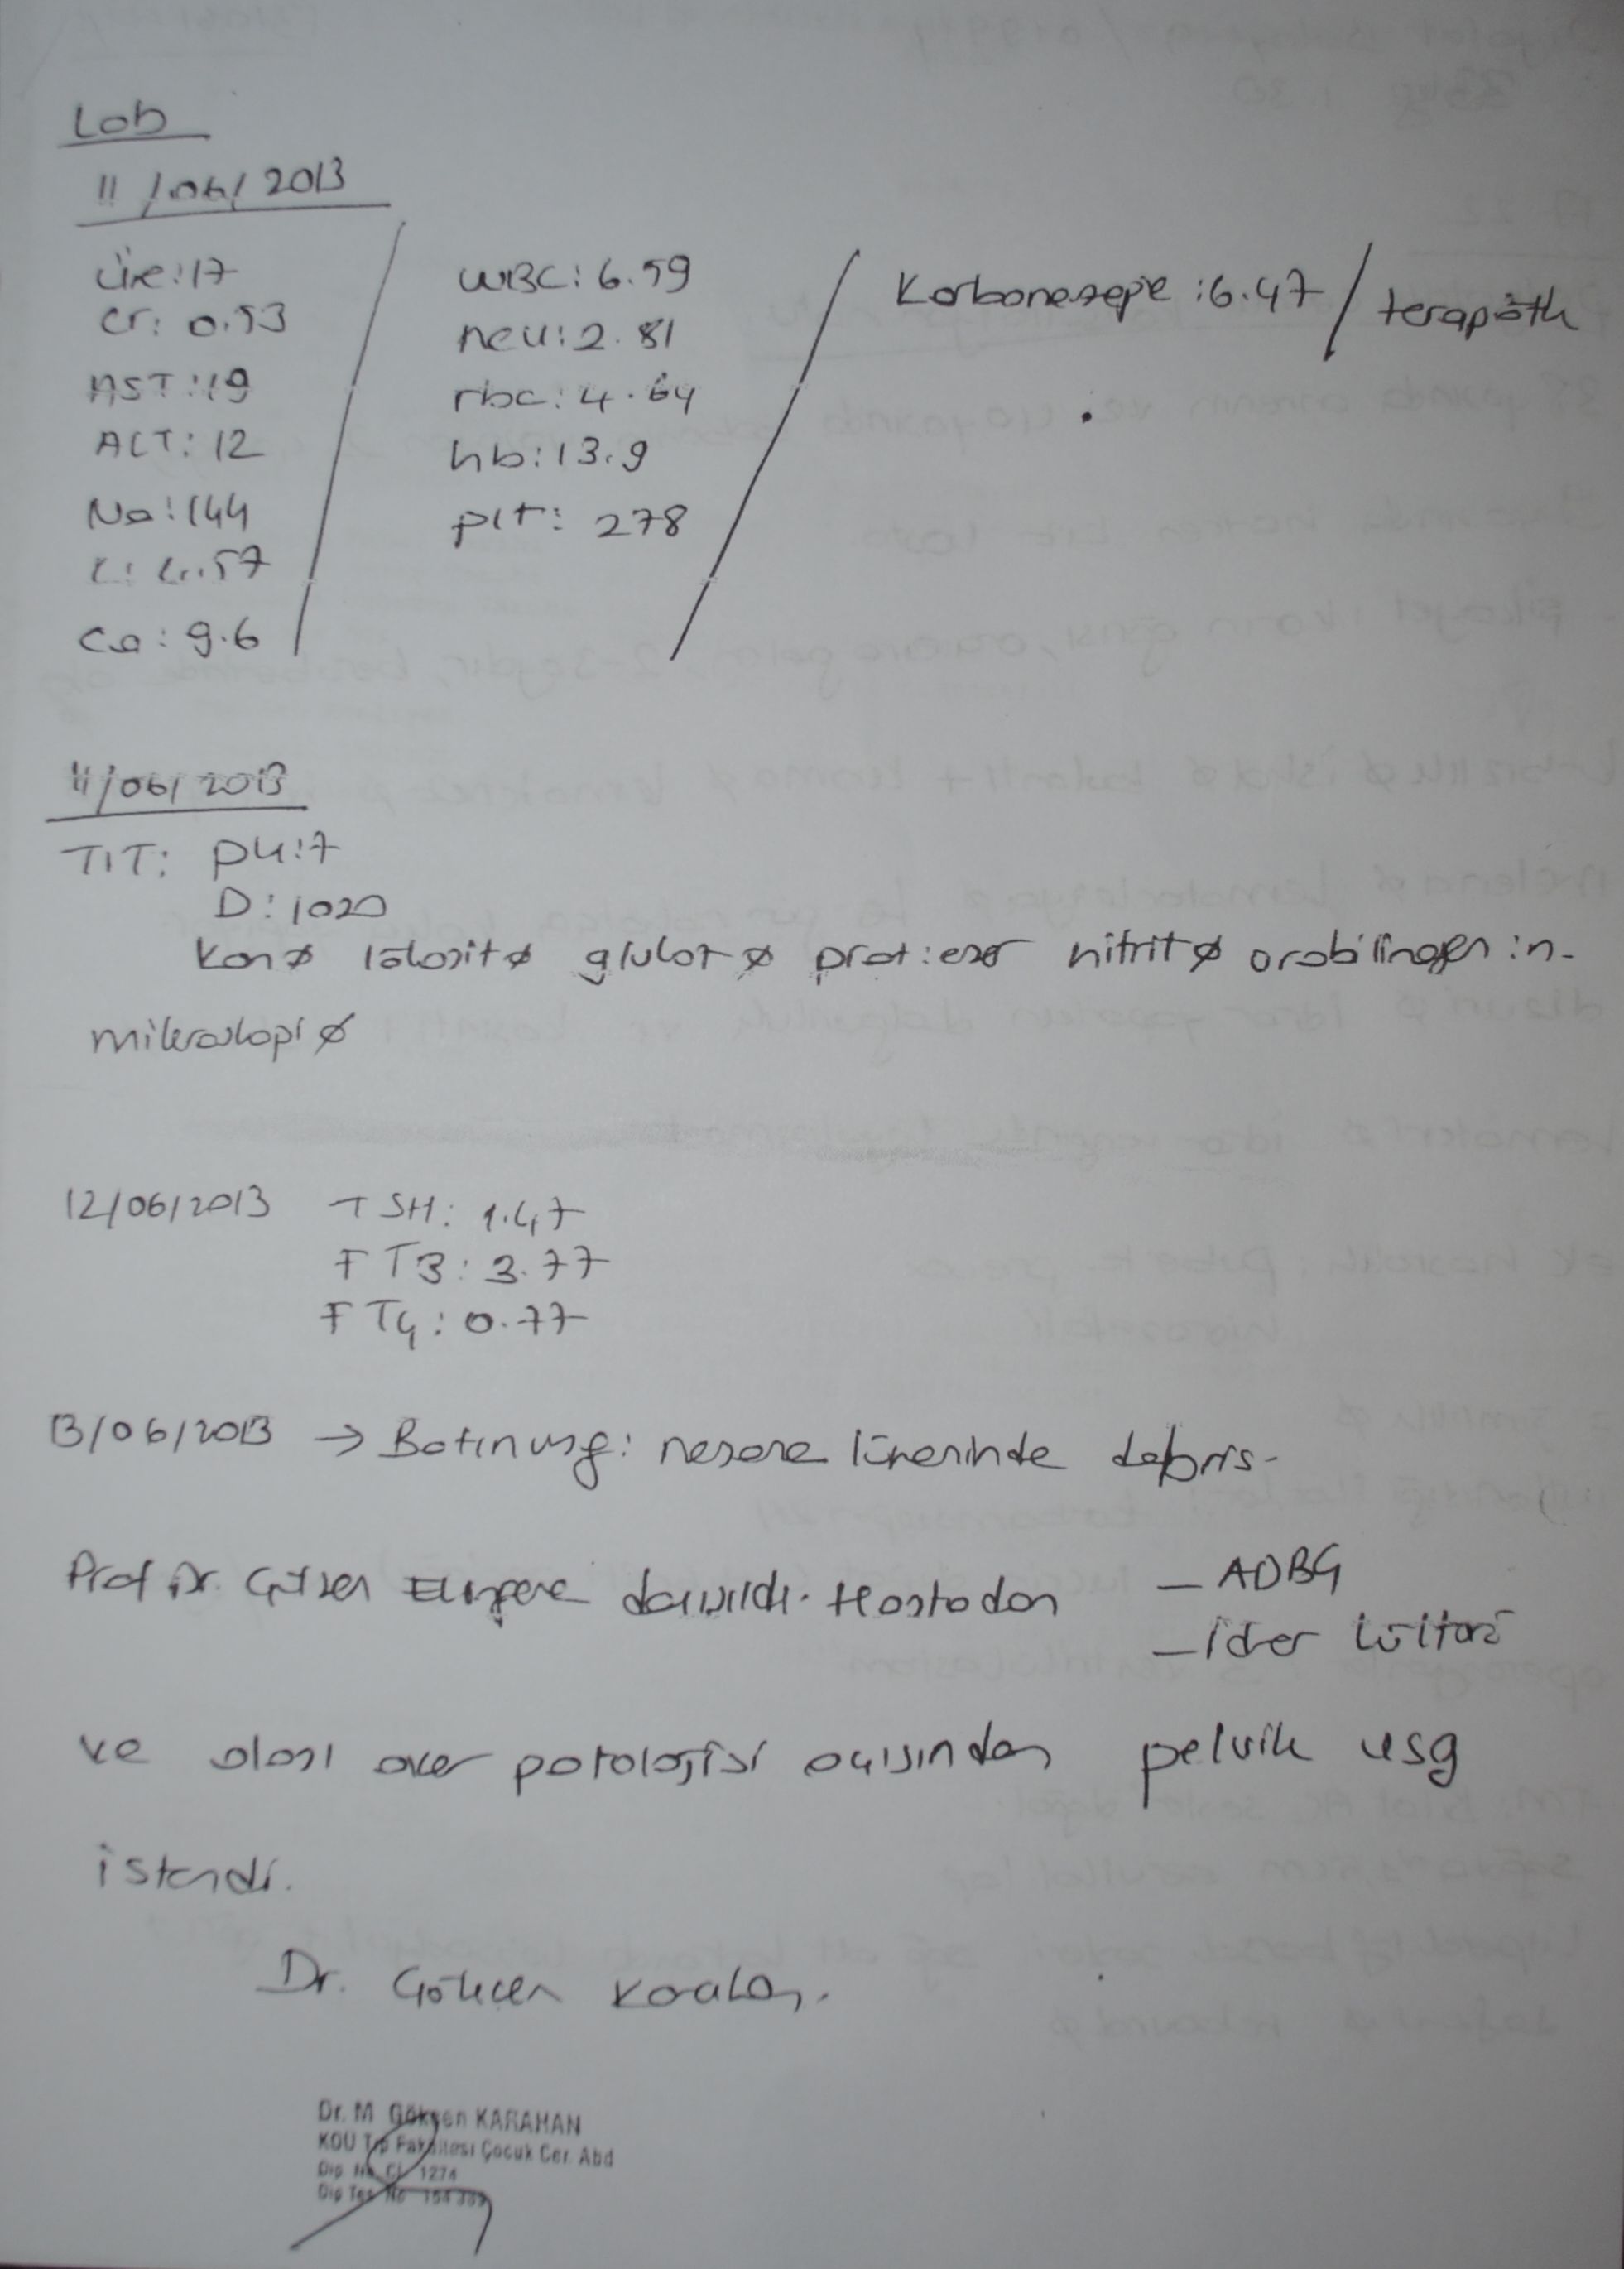 Lab
11/06/2013
Üre:17
cr: 0.53
AST:19
ALT: 12
Na:144
K: 4.57
Ca: 9.6
WBC: 6.59
neu: 2.81
rbc: 4.64
hb: 13.9
plt: 278
Karbamezepie :6.47 / terapötik
11/06/2013
TİT: pH:7
D:1020
Kan ø lökosit ø glukoz ø prot:eser nitrit ø ürobilinogen:n.
mikroskopi ø
12/06/2013 TSH: 1.47
FT3: 3.77
FT4: 0.77
13/06/2013 → Batın usg: mesane lümeninde debris-
Prof Dr. danışıldı. Hastadan
- ADBG
- idrar kültürü
ve olası over patolojisi açısından pelvik usg
istendi.
Dr. Gökçen
Dr. M Gökçen KARAHAN
KOU Tıp Fakültesi Çocuk Cer. Abd
Dip. No. 1274
Dip Tes No